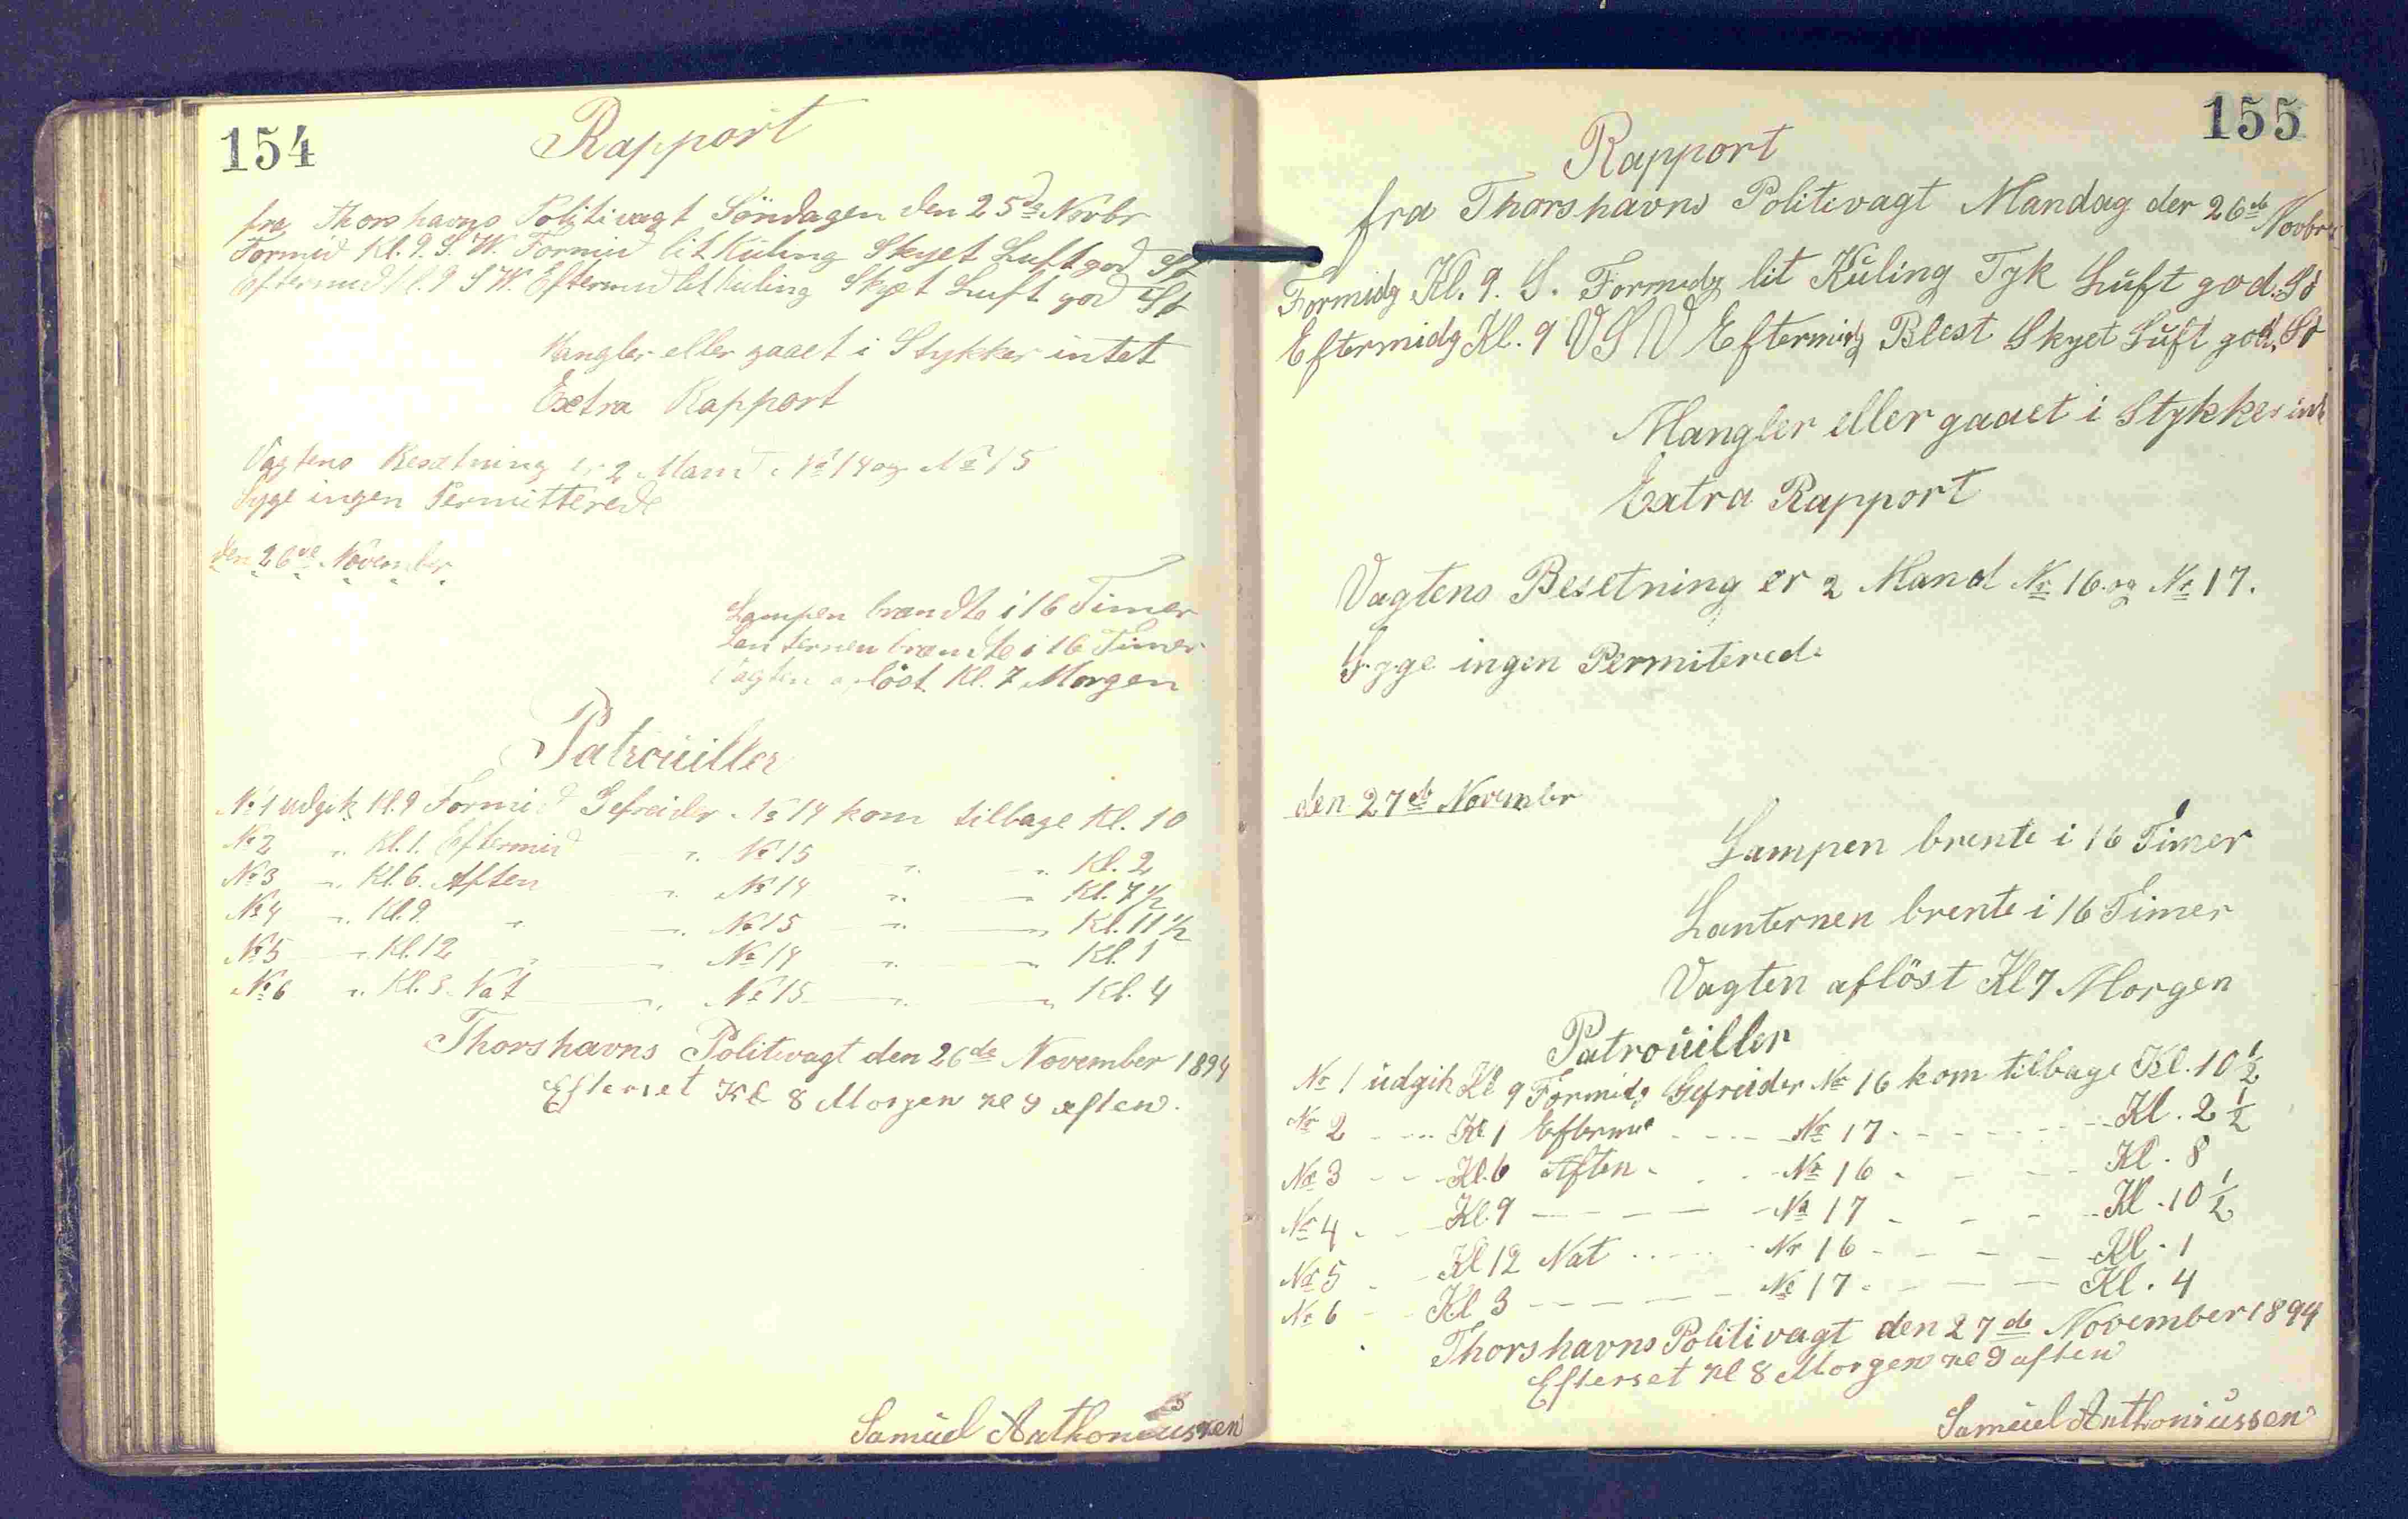 154
Rapport
fra Thorshavns Politivagt Söndagen den 25de Novbr
Formid Kl. 9. S. W. Formid lit Kuling Skyet Luft god St
Eftermid Kl. 9 S W. Eftermid lit Kuling Skyet Luft god St
Mangler eller gaaet i Stykker intet
Extra Rapport
Vagtens Besætning er 2 Mand No 14 og No 15
Syge ingen Permitterede
den 26de November
Lampen brændte i 16 Timer
Lanternen brændte i 16 Timer
Vagten aflöst Kl. 7 Morgen
Patrouiller
No 1 udgik Kl. 9 Formid Gefreider No 14 kom tilbage Kl. 10
No 2 " Kl. 1. Eftermid " No 15 " " Kl. 2
No 3 " Kl. 6. Aften " No 14 " " Kl. 7 1/2
No 4 " Kl. 9. " " No 15 " " Kl. 11 1/2
No 5 " Kl. 12 " " No 14 " " Kl. 1
No 6 " Kl. 3. Nat " No 15 " " Kl. 4
Thorshavns Politivagt den 26de November 1894
Efterset Kl 8 Morgen Kl 9 aften.
Samüel Anthoniussen
155
Rapport
fra Thorshavns Politivagt Mandag der 26de Novbr
Formidg Kl. 9. S. Formidg lit Kuling Tyk Luft god. Sö
Eftermidg Kl. 9 V S V Eftermidg Blest Skyet Luft god. Sö
Mangler eller gaaet i Stykker int
Extra Rapport
Vagtens Besetning er 2 Mand Nr 16. og Nr 17.
Syge ingen Permiterede
den 27de Novembr
Lampen brente i 16 Timer
Lanternen brente i 16 Timer
Vagten aflöst Kl 7 Morgen
Patrouiller
Nr 1 udgik Kl 9 Formidg Gefreider Nr 16 kom tilbage Kl. 10 1/2
Nr 2 - - - Kl 1 Eftermid - - - - Nr 17 - - - - - - - Kl. 2 1/2
Nr 3 - - - Kl. 6 Aften - - - - Nr 16 - - - - - Kl. 8
Nr 4 - - Kl. 9 - - - - - - Nr 17 - - - - - Kl. 10 1/2
Nr 5 - - Kl 12 Nat - - - - - Nr 16 - - - - - Kl. 1
Nr 6 - - Kl 3 - - - - - - Nr 17 - - - - - Kl. 4
Thorshavns Politivagt den 27de November 1894
Efterset Kl 8 Morgen Kl 9 aften
Samüel Anthoniussen